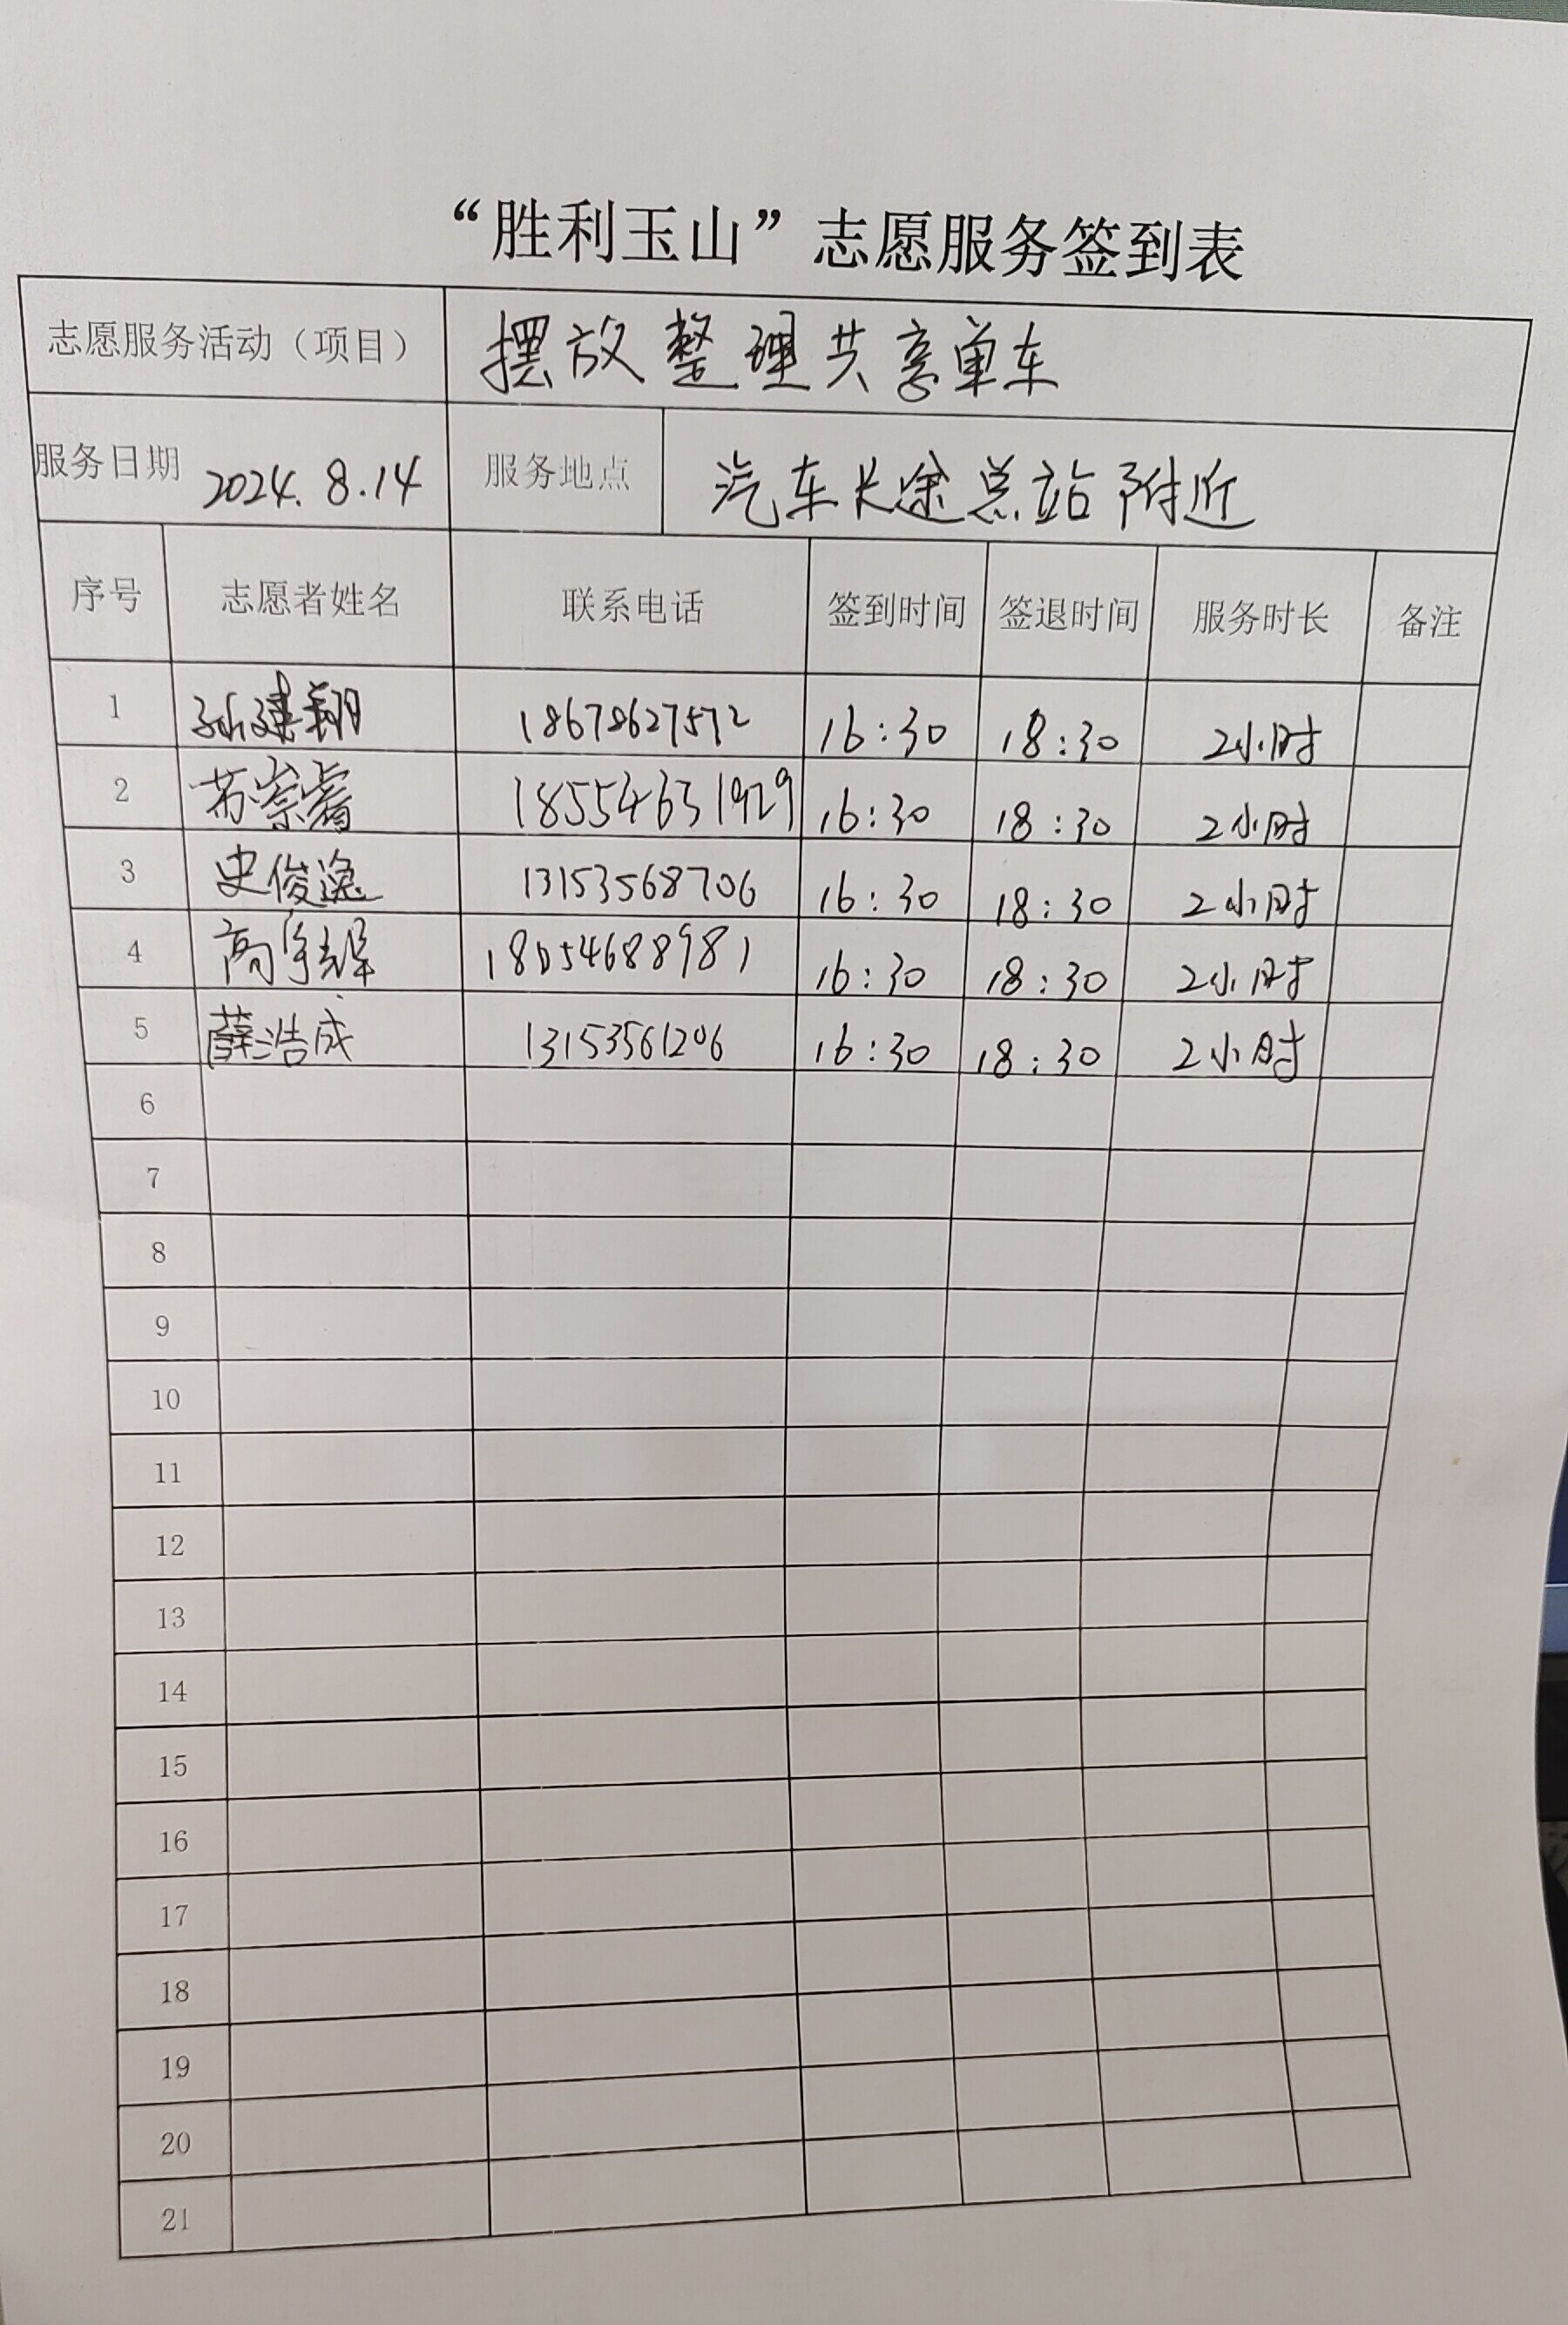 “胜利玉山”志愿服务签到表
志愿服务活动（项目） 摆放整理共享单车
服务日期 2024.8.14 服务地点 汽车长途总站附近
序号 志愿者姓名 联系电话 签到时间 签退时间 服务时长 备注
1 孙建翔 18678627572 16:30 18:30 2小时
2 苏崇睿 18554631929 16:30 18:30 2小时
3 史俊逸 13153568706 16:30 18:30 2小时
4 高宇辉 18054688981 16:30 18:30 2小时
5 薛浩成 13153561206 16:30 18:30 2小时
6
7
8
9
10
11
12
13
14
15
16
17
18
19
20
21